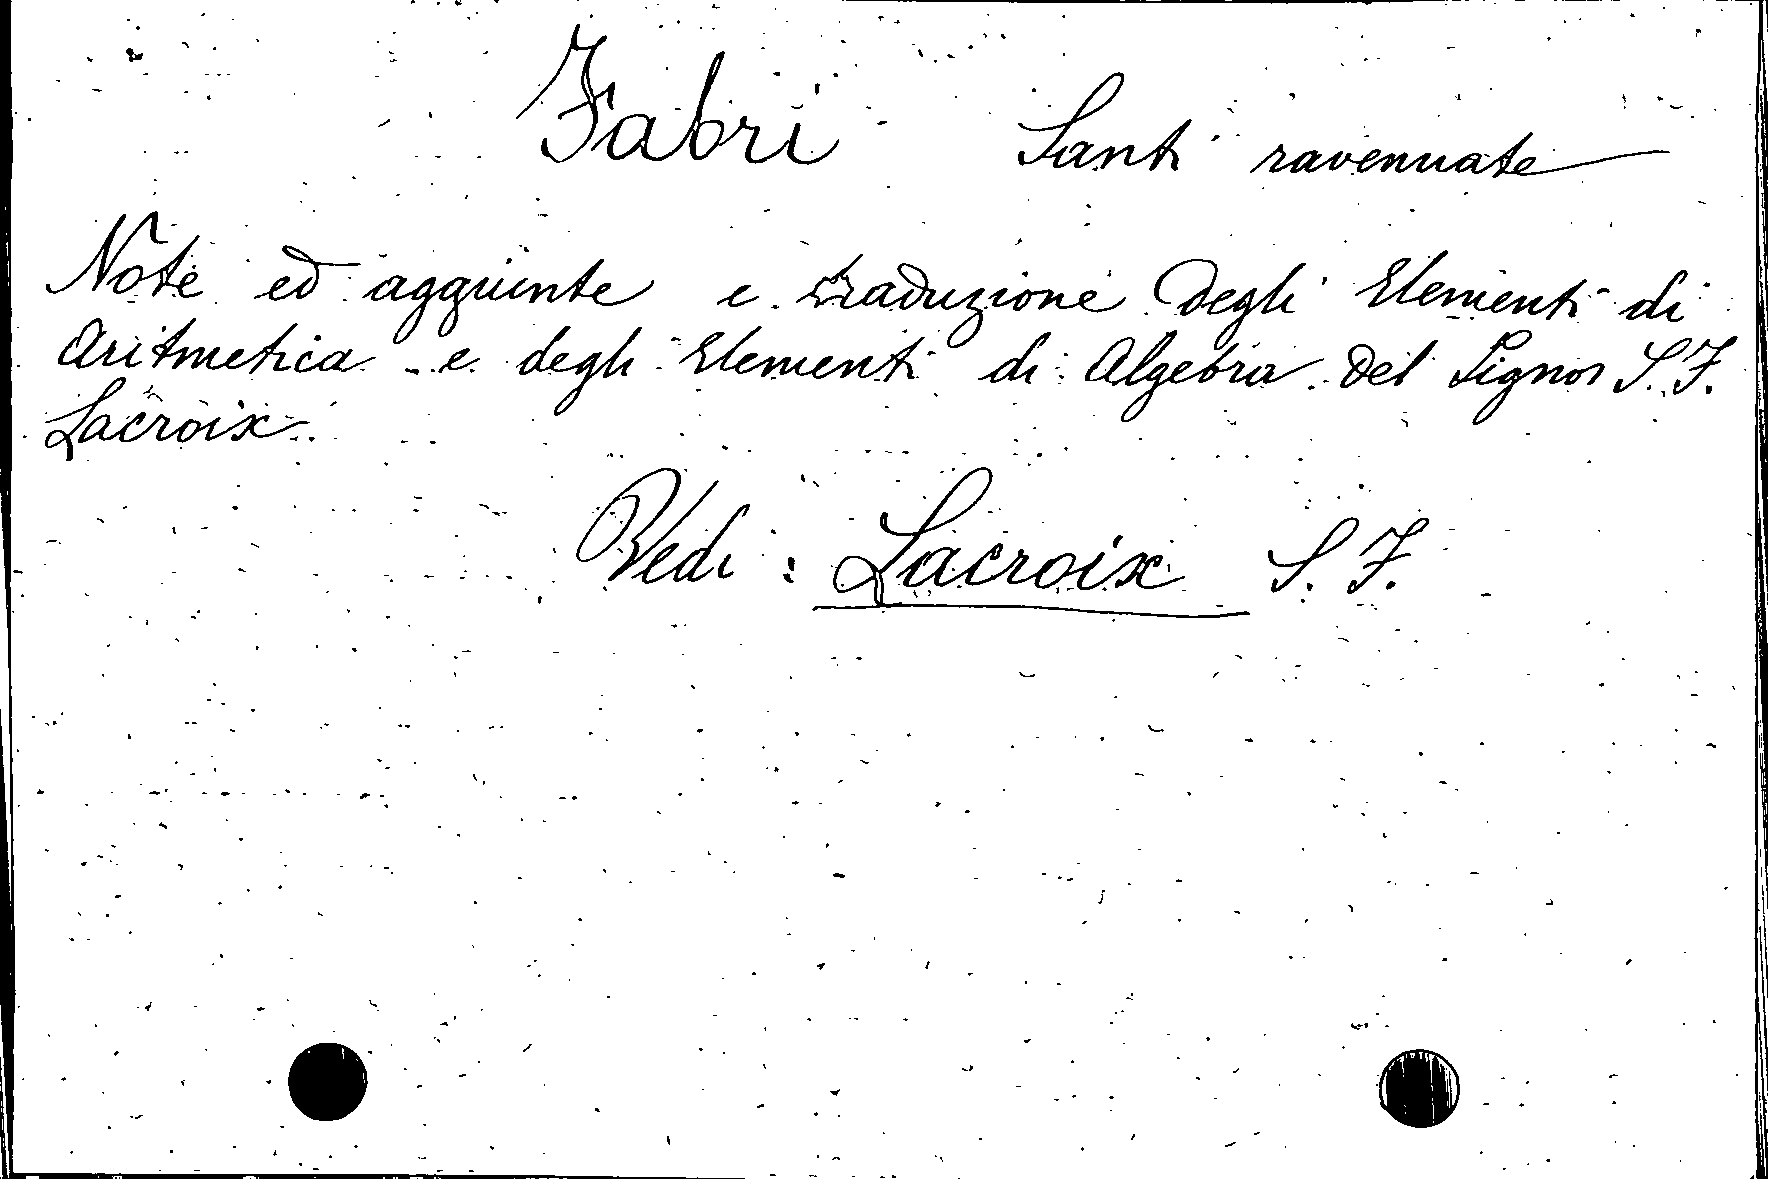 Fabri Santi ravennate
Note ed aggiunte e traduzione degli Elementi di
Aritmetica e degli Elementi di Algebra del Signor S. F.
Lacroix.
Vedi: Lacroix S. F.